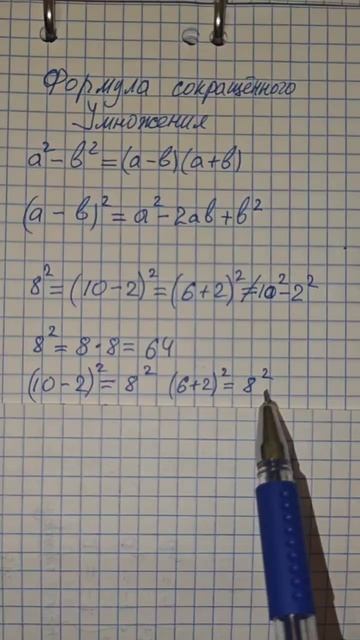 Формула сокращённого
Умножения
a² - b² = (a - b)(a + b)
(a - b)² = a² - 2ab + b²
8² = (10 - 2)² = (6 + 2)² ≠ 10² - 2²
8² = 8 · 8 = 64
(10 - 2)² = 8² (6 + 2)² = 8²